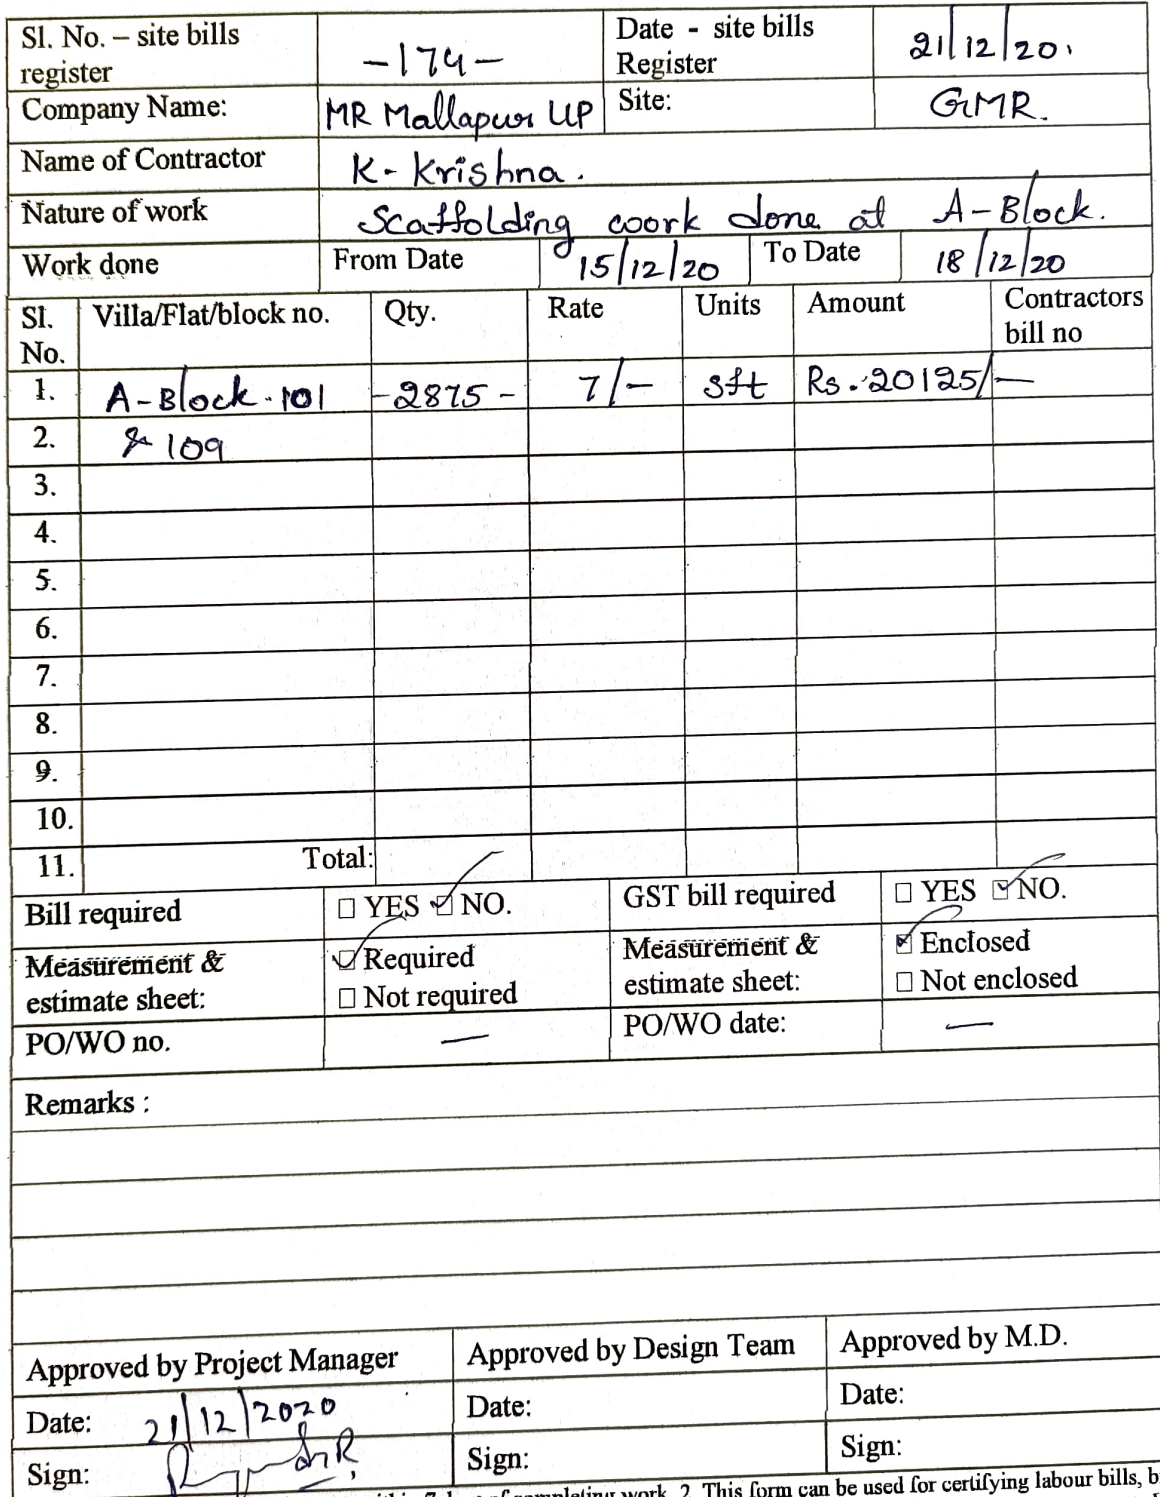 Sl. No. – site bills register -174- Date - site bills Register 21/12/20.
Company Name: MR Mallapur LLP Site: GMR.
Name of Contractor K- Krishna.
Nature of work Scaffolding work done at A-Block.
Work done From Date 15/12/20 To Date 18/12/20
Sl. No. Villa/Flat/block no. Qty. Rate Units Amount Contractors bill no
1. A-Block-101 -2875- 7/- sft Rs. 20125/-
2. & 109
3.
4.
5.
6.
7.
8.
9.
10.
11. Total:
Bill required □ YES ☑ NO. GST bill required □ YES ☑ NO.
Measurement & estimate sheet: ☑ Required □ Not required Measurement & estimate sheet: ☑ Enclosed □ Not enclosed
PO/WO no. — PO/WO date: —
Remarks :
Approved by Project Manager Approved by Design Team Approved by M.D.
Date: 21/12/2020 Date: Date:
Sign: Sign: Sign:
completing work. 2. This form can be used for certifying labour bills, b